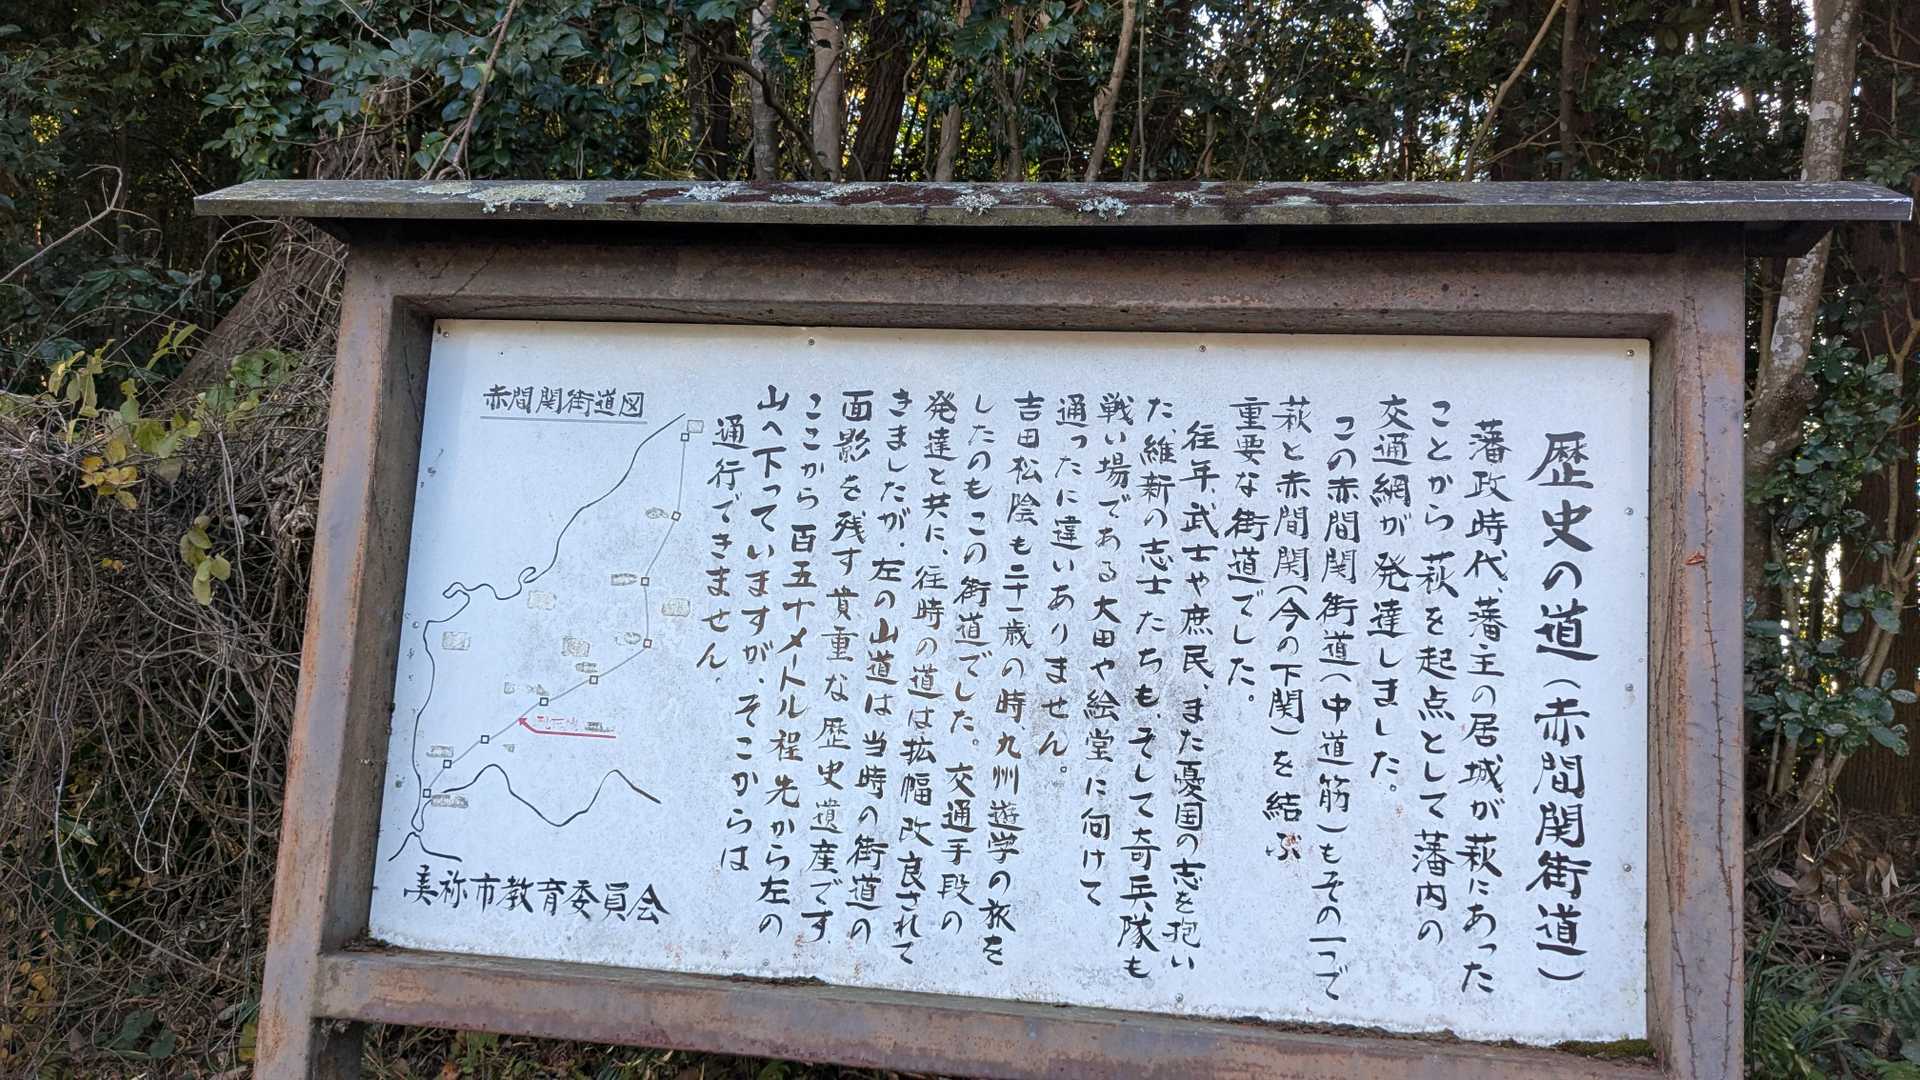 歴史の道(赤間関街道)
藩政時代、藩主の居城が萩にあった
ことから萩を起点として藩内の
交通網が発達しました。
この赤間関街道(中道筋)もその一つで
萩と赤間関(今の下関)を結ぶ
重要な街道でした。
往年、武士や庶民、また憂国の志を抱い
た、維新の志士たちも、そして奇兵隊も
戦い場である大田や絵堂に向けて
通ったに違いありません。
吉田松陰も二十一歳の時九州遊学の旅を
したのもこの街道でした。交通手段の
発達と共に、往時の道は拡幅改良されて
きましたが、左の山道は当時の街道の
面影を残す貴重な歴史遺産です
ここから百五十メートル程先から左の
山へ下っていますが、そこからは
通行できません。
赤間関街道図
美祢市教育委員会